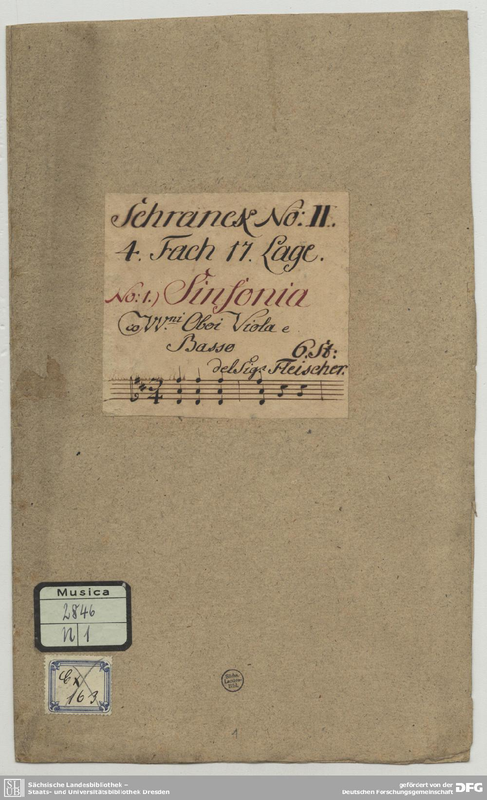 Schranck No: II.
4. Fach 17. Lage.
No: 1.) Sinfonia
co VV.ni Oboi Viola e
Basso
6. St:
del Sigr Fleischer.
Musica
2846
N 1
Cx
163
Sächs.
Landes-
Bibl.
1
SLUB
Sächsische Landesbibliothek –
Staats- und Universitätsbibliothek Dresden
gefördert von der
Deutschen Forschungsgemeinschaft
DFG